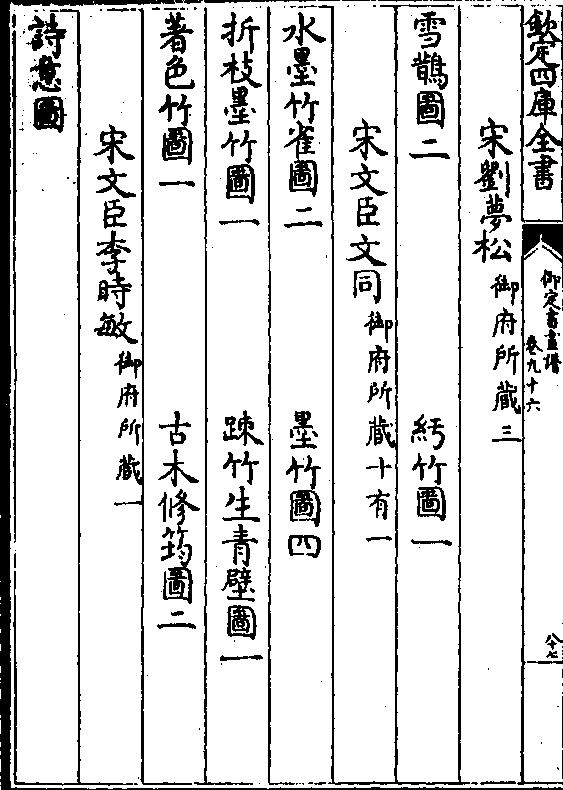 欽定四庫全書
御定書畫譜
卷九十六
八十七
宋劉夢松御府所藏三
雪鵲圖二　紆竹圖一
宋文臣文同御府所藏十有一
水墨竹雀圖二　墨竹圖四
折枝墨竹圖一　踈竹生青壁圖一
著色竹圖一　古木修筠圖二
宋文臣李時敏御府所藏一
詩意圖